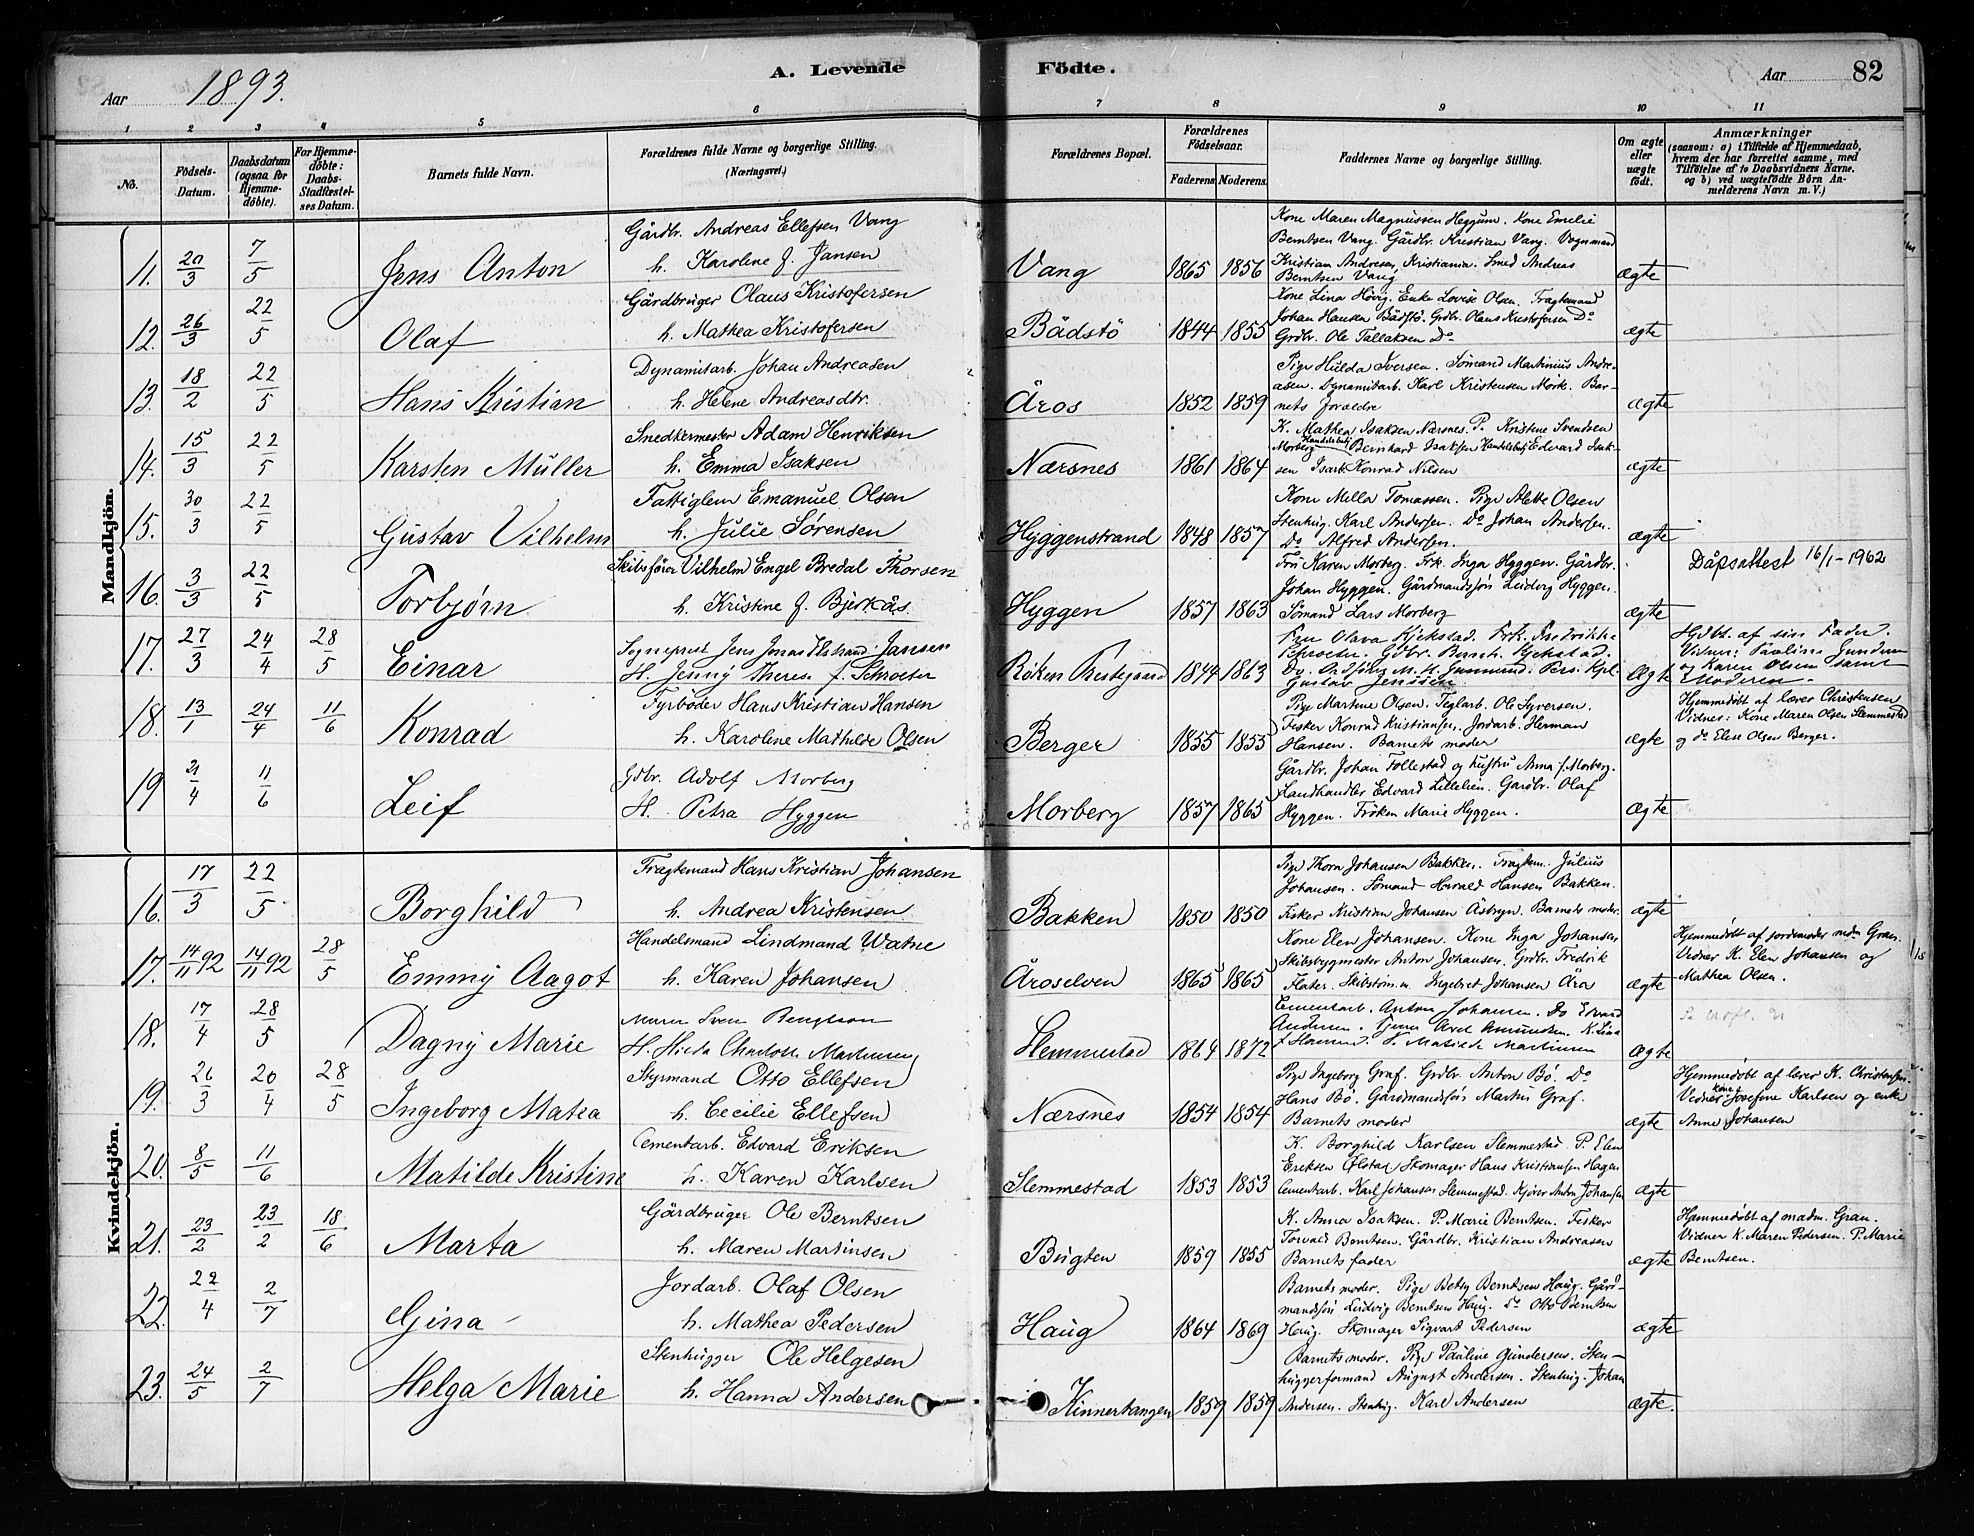 A. Levende
Födte.
Aar 1893.
Aar 82
1 2 3 4 5 6 7 8 9 10 11
No.
Födsels-Datum.
Daabsdatum (ogsaa for Hjemme-döbte).
For Hjemme-döbte: Daabs-Stadfæstel-ses Datum.
Barnets fulde Navn.
Forældrenes fulde Navne og borgerlige Stilling. (Næringsvei.)
Forældrenes Bopæl.
Forældrenes Födselsaar.
Faderens. Moderens.
Faddernes Navne og borgerlige Stilling.
Om ægte eller uægte födt.
Anmærkninger
(saasom: a) i Tilfælde af Hjemmedaab, hvem der har forrettet samme, med Tilföielse af to Daabsvidners Navne, og b) ved uægtefödte Börn Anmelderens Navn m. V.)
Mandkjön.
Gårdbr. Andreas Ellefsen Vang
11. 20/3 7/5 Jens Anton h. Karoline f. Jansen Vang 1865 1856 ægte
Kone Maren Magnussen Heggum. Kone Emelie
Berntsen Vang. Gårdbr. Kristian Vang. Vognmand
Kristian Andresen, Kristiania. Smed Andreas
Berntsen Vang
Gårdbruger Olaus Kristofersen
12. 26/3 22/5 Olaf h. Mathea Kristofersen Bådstö 1844 1855 ægte
Kone Lina Hövig. Enke Lovise Olsen. Fragtemand
Johan Hansen Bådstö. Grdbr. Olaus Kristofersen Do
Grdbr. Ole Tallaksen Do
Dynamitarb. Johan Andreasen
13. 18/2 22/5 Hans Kristian h. Helene Andreasdtr. Åros 1852 1859 ægte
Pige Hulda Iversen. Sömand Martinius Andre-
asen. Dynamitarb. Karl Kristensen Mörk. Bar-
nets forældre
Snedkermester Adam Henriksen
14. 15/3 22/5 Karsten Müller h. Emma Isaksen Nærsnes 1861 1864 ægte
K. Mathea Isaksen Nærsnes. P. Kristine Svendsen
Morberg Handelsbetj. Bernhard Isaksen Handelsbetj. Edvard Isak-
sen Isarb. Konrad Nilsen
Fattiglem Emanuel Olsen
15. 30/3 22/5 Gustav Vilhelm h. Julie Sørensen Hyggenstrand 1848 1857 ægte
Kone Milla Tomassen. Pige Alette Olsen
Stenhug. Karl Andersen. Do Johan Andersen.
Do Alfred Andersen.
Skibsförer Vilhelm Engel Bredal Thorsen
16. 3/3 22/5 Torbjørn h. Kristine f. Bjerkås Hyggen 1857 1863 ægte Dåpsattest 16/1-1962
Fru Karen Morberg. Frk. Inga Hyggen. Gårdbr.
Johan Hyggen. Gårdmandssön Ludvig Hyggen.
Sömand Lars Morberg
Sogneprest Jens Jonas Elstrand Jansen
17. 27/3 24/4 28/5 Einar H. Jenny Therese f. Schroeter Röken Prestegaard 1844 1863 Ægte
Fru Olava Kjekstad. Frk. Fredrikke
Schroeter. Gdbr. Bernh. Kjekstad.
Gustav Jenssen
Hjdbt. af sin Fader.
Vidner: Pauline Gundersen
og Karen Olsen samt
Moderen.
Fyrböder Hans Kristian Hansen
18. 13/1 24/4 11/6 Konrad h. Karoline Mathilde Olsen Berger 1855 1855 ægte
Pige Martine Olsen. Teglarb. Ole Syversen.
Fisker Konrad Kristiansen. Jordarb. Herman
Hansen. Barnets moder
Hjemmedöbt af lærer Christensen
Vidner: Kone Maren Olsen Slemmestad
og do Elise Olsen Berger.
Gdbr. Adolf Morberg
19 21/4 11/6 Leif H. Petra Hyggen Morberg 1857 1865 Ægte
Gårdbr. Johan Follestad og hustru Anna f. Morberg.
Landhandler Edvard Lillelien. Gardbr. Olaf
Hyggen. Fröken Marie Hyggen.
Kvindekjön.
Fragtemand Hans Kristian Johansen
16. 17/3 22/5 Borghild h. Andrea Kristensen Bakken 1850 1850 ægte
Pige Thora Johansen Bakken. Fragtem. Julius
Johansen. Sömand Harald Hansen Bakken.
Fisker Kristian Johansen Åsbryn. Barnets moder.
Handelsmand Lindmand Watne
17. 14/11 92 14/11 92 28/5 Emmy Aagot h. Karen Johansen Åroselven 1865 1865 ægte
Kone Elen Johansen. Kone Inga Johansen
Skibsbygmester Anton Johansen. Grdbr. Fredrik
Flater. Skibstöm.m. Ingebret Johansen Åra
Hjemmedöbt af jordemoder mdm Gran.
Vidner K. Elen Johansen og
Mathea Olsen.
Murer Sven Bengtson
18. 17/4 28/5 Dagny Marie H. Hilda Charlotte Martinsen Slemmestad 1864 1872 Ægte
Cementarb. Anton Johansen. Do Edvard
Andersen. Axel Amundsen. K. Lina
Hansen. Matilde Martinsen
Styrmand Otto Ellefsen
19. 26/3 20/4 28/5 Ingeborg Matea h. Cecilie Ellefsen Nærsnes 1854 1854 ægte
Pige Ingeborg Graf. Grdbr. Anton Bö. Do
Hans Bö. Gårdmandssön Martin Graf.
Barnets moder
Hjemmedöbt af lærer K. Christensen.
Vidner: kone Josefine Karlsen og enke
Anne Johansen
Cementarb. Edvard Eriksen
20. 8/5 11/6 Matilde Kristine h. Karen Karlsen Slemmestad 1853 1853 ægte
K. Borghild Karlsen Slemmestad. P. Elen
Eriksen Ölstad, Skomager Hans Kristiansen Hagen
Cementarb. Karl Johansen Slemmestad. Kjörer Anton Johansen
Gårdbruger Ole Berntsen
21. 23/2 23/2 18/6 Marta h. Maren Martinsen Bugten 1859 1855 ægte
K. Anna Isaksen. P. Marie Berntsen. Fisker
Torvald Berntsen. Gårdbr. Kristian Andreasen
Barnets fader
Hjemmedöbt af madm. Gran.
Vidner K. Maren Pedersen. P. Marie
Berntsen.
Jordarb. Olaf Olsen
22. 22/4 2/7 Gina h. Mathea Pedersen Haug 1864 1869 ægte
Barnets moder. Pige Betsy Berntsen Haug. Gård-
mandssön Ludvig Berntsen Haug. do Otto Berntsen
Haug. Skomager Sigvart Pedersen
Stenhugger Ole Helgesen
23. 24/5 2/7 Helga Marie h. Hanna Andersen Kinnertangen 1859 1859 ægte.
Barnets moder. Pige Pauline Gundersen. Sten-
huggerformand August Andersen. Stenhug. Johan
Andersen. Stenhug. Karl Andersen